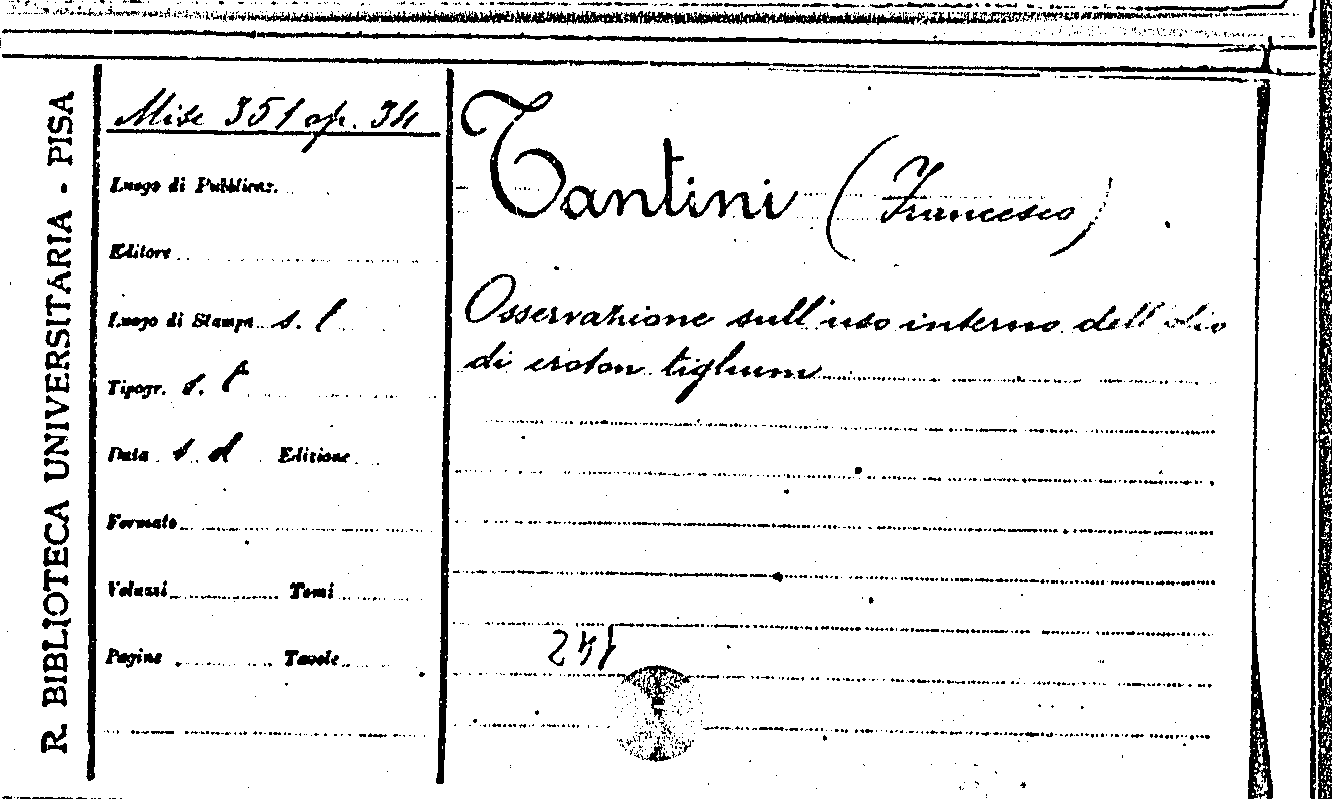 R. BIBLIOTECA UNIVERSITARIA - PISA
Misc 351 op. 34
Luogo di Pubblicaz.
Editore
Luogo di Stampa s. l
Tipogr. s. t
Data s. d Edizione
Formato
Volumi Tomi
Pagine Tavole
Tantini (Francesco)
Osservazione sull'uso interno dell'olio
di croton tiglium